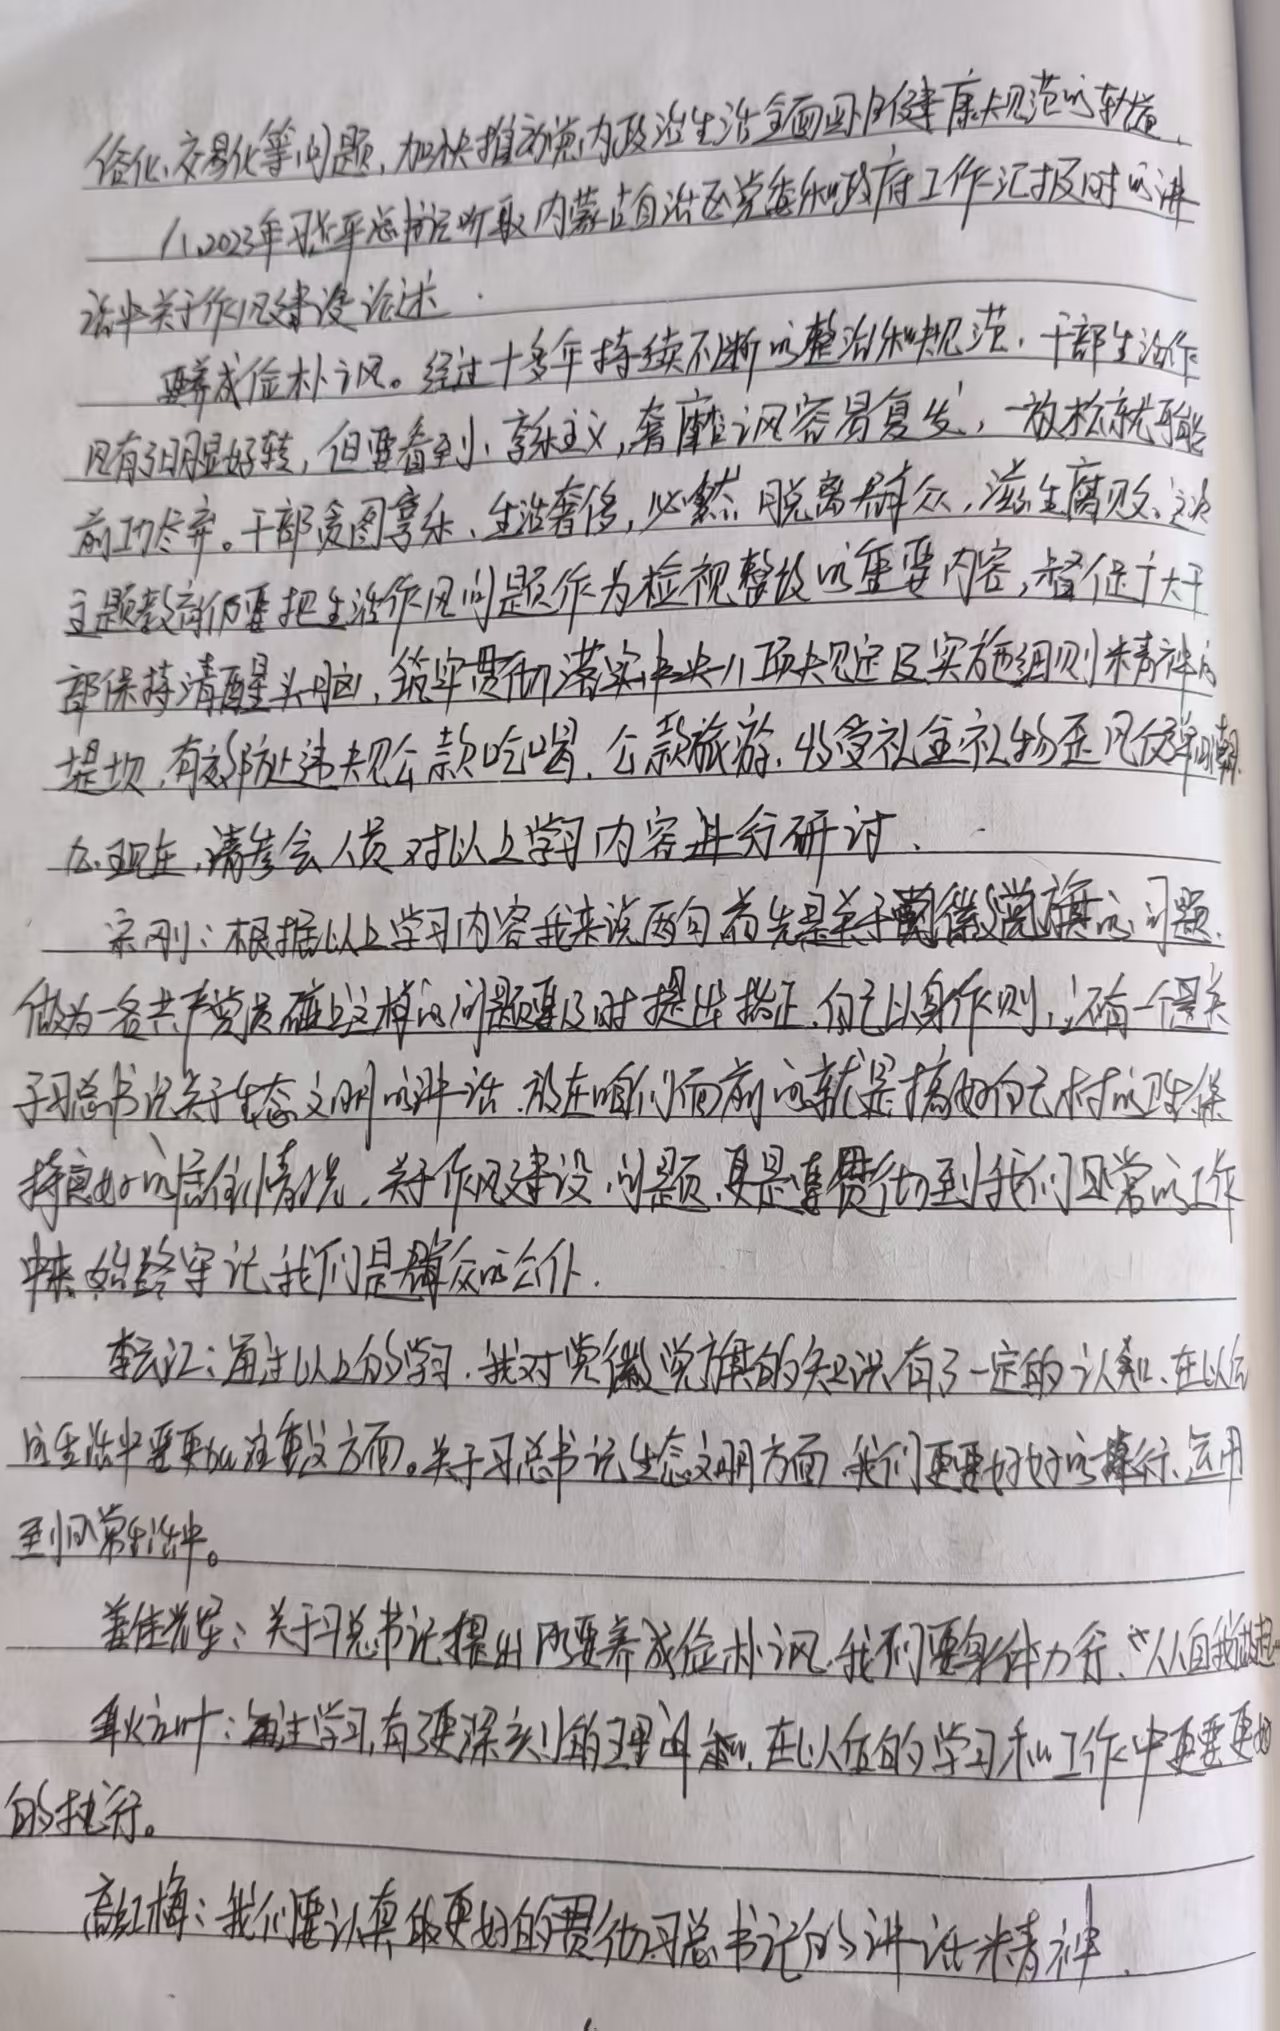 俗化、交易化等问题，加快推动党内政治生活全面回归健康规范的轨道、
八、2023年习近平总书记听取内蒙古自治区党委和政府工作汇报时的讲
话中关于作风建设论述
要养成俭朴之风。经过十多年持续不断的整治和规范、干部生活作
风有了明显好转，但要看到、享乐主义，奢靡之风容易复发，一放松就可能
前功尽弃。干部贪图享乐、生活奢侈，必然脱离群众，滋生腐败、这次
主题教育仍要把生活作风问题作为检视整改的重要内容，督促广大干
部保持清醒头脑，筑牢贯彻落实中央八项规定及实施细则精神的
堤坝，有效防止违规公款吃喝、公款旅游、收受礼金礼物歪风反弹回潮.
九、现在，请参会人员对以上学习内容进行研讨.
宋刚：根据以上学习内容我来说两句首先是关于党徽党旗的问题.
做为一名共产党员碰上这样的问题要及时提出指正，自己以身作则，还有一个是关
于习总书记关于生态文明的讲话.放在咱们面前的就是搞好白云村的卫生保
持良好的居住情况，关于作风建设问题，更是要贯彻到我们日常的工作
中来.始终牢记我们是群众的公仆.
李云江：通过以上的学习.我对党徽党旗的知识有了一定的认知、在以后
的生活中要更加注重这方面。关于习总书记生态文明方面.我们更要好好的执行、运用
到日常生活中。
关于习总书记提出的要养成俭朴之风.我们要身体力行、从自我做起
通过学习，有了更深刻的理解和.在以后的学习和工作中更要更好
的执行。
高红梅：我们要认真的更好的贯彻习总书记的讲话精神.